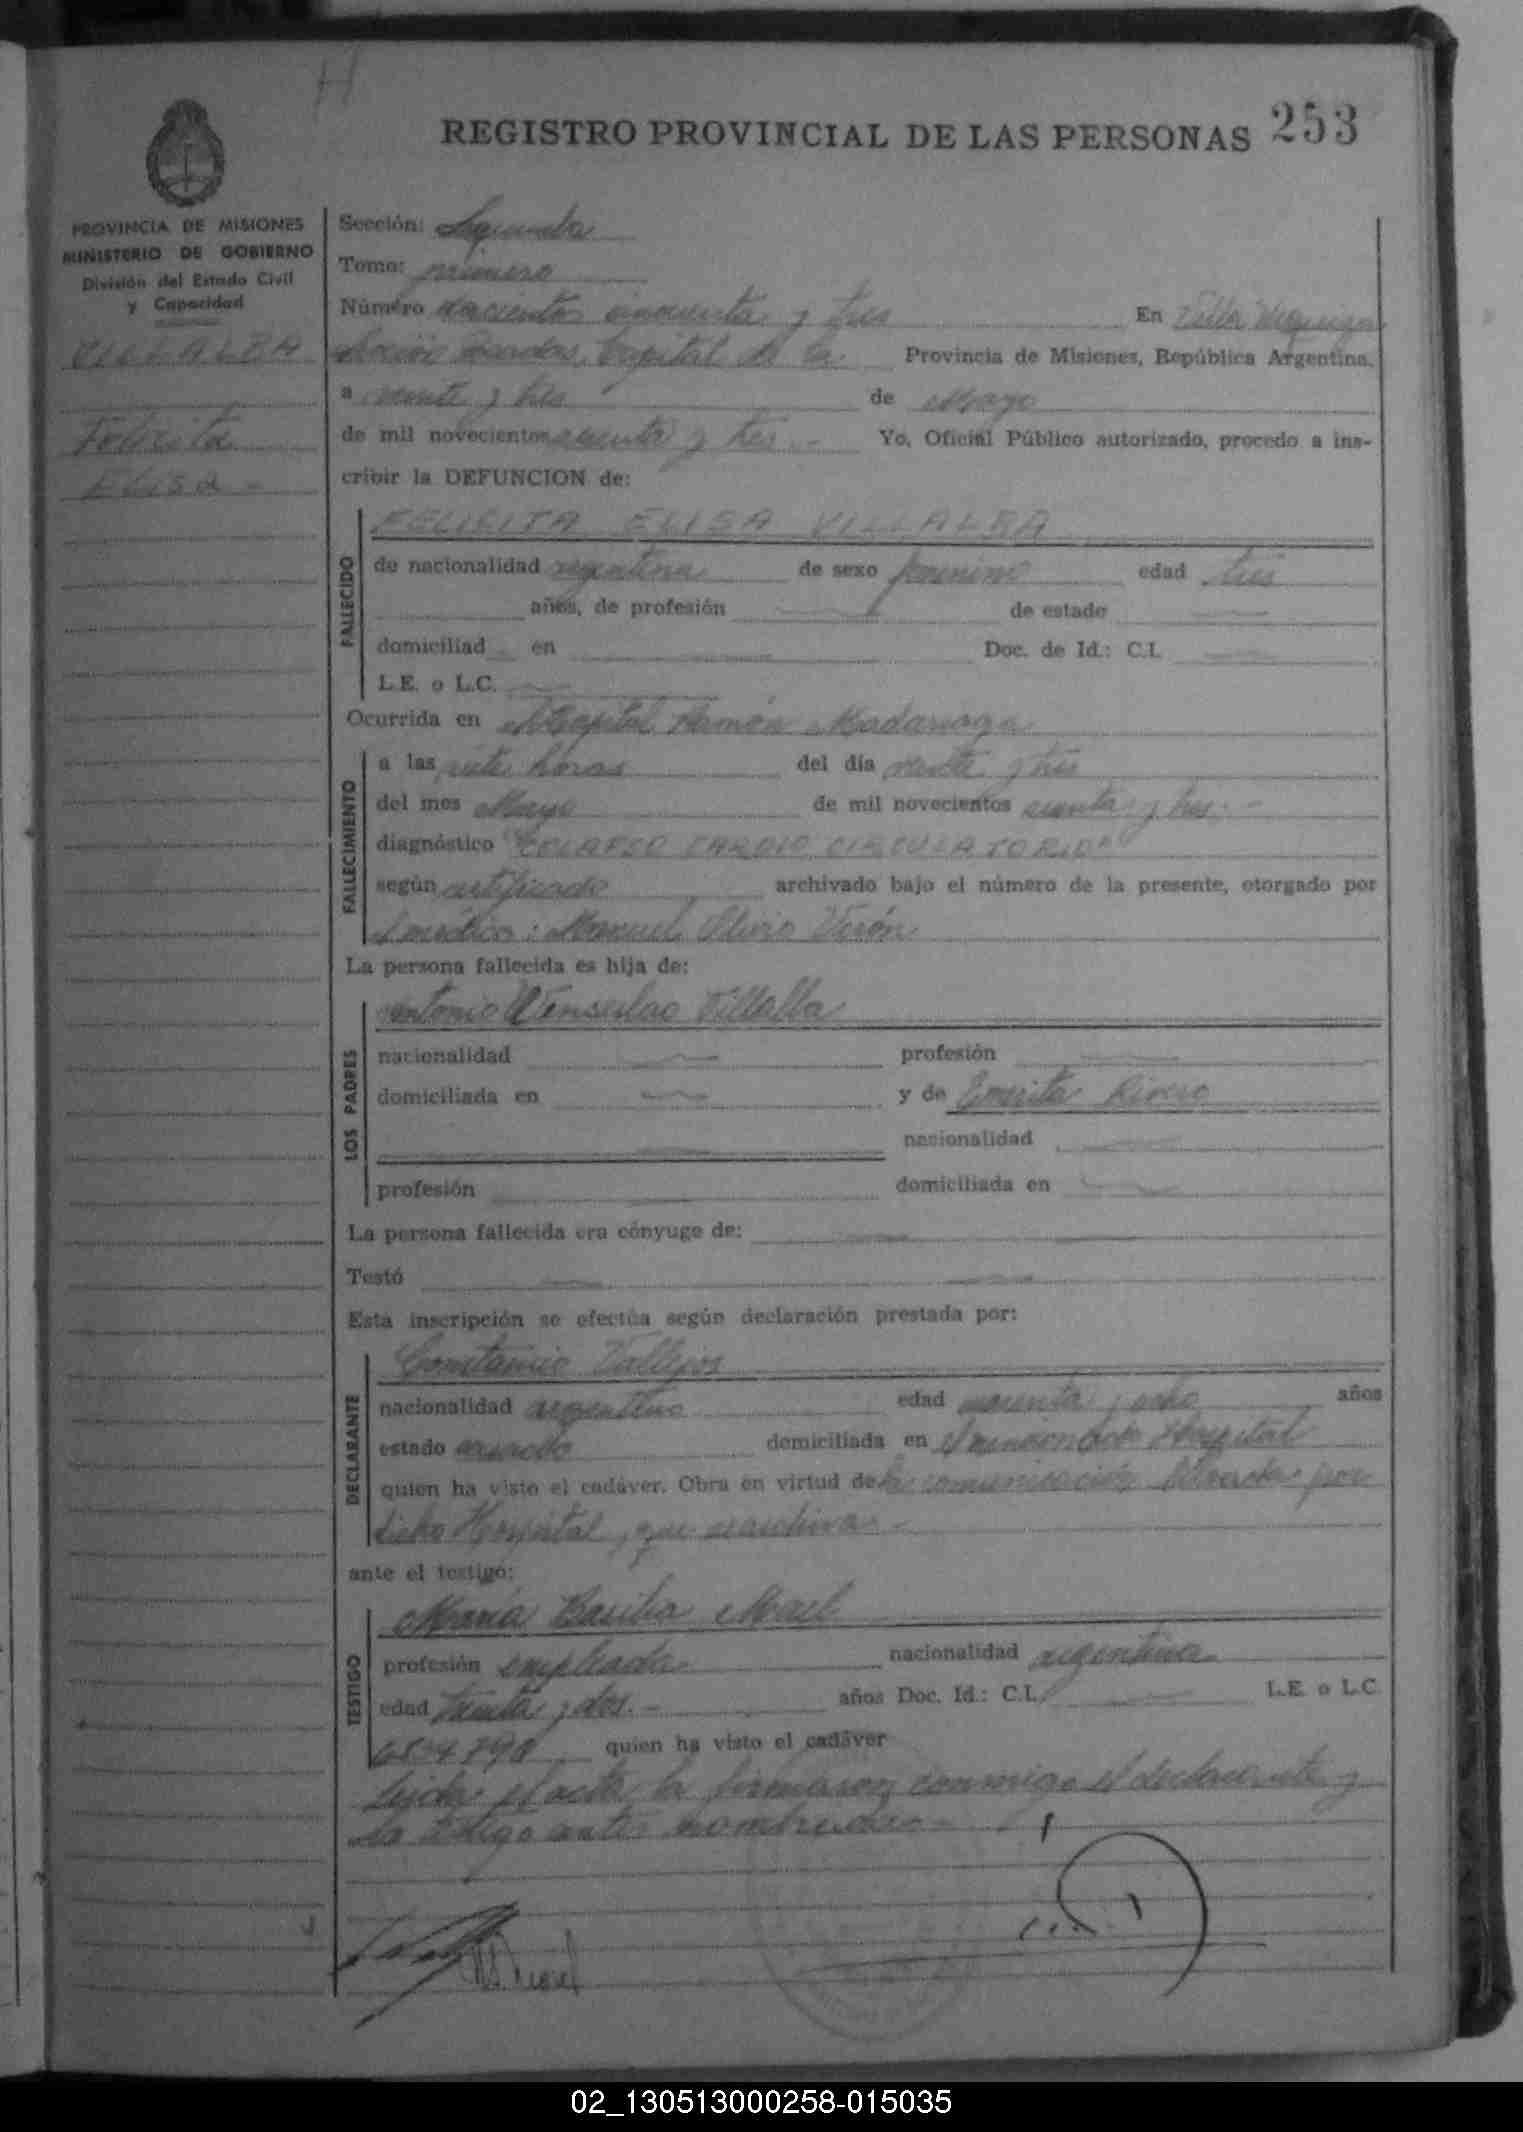 H
REGISTRO PROVINCIAL DE LAS PERSONAS 253
PROVINCIA DE MISIONES
MINISTERIO DE GOBIERNO
División del Estado Civil
y Capacidad
VILLALBA
Felicita
Elisa -
Sección: Segunda
Tomo: primero
Número doscientos cincuenta y tres En Villa Urquiza
Sección Posadas, Capital de la Provincia de Misiones, República Argentina,
a veinte y tres de Mayo
de mil novecientos sesenta y tres.- Yo, Oficial Público autorizado, procedo a ins-
cribir la DEFUNCION de:
FALLECIDO
FELICITA ELISA VILLALBA
de nacionalidad argentina de sexo femenino edad tres
años, de profesión de estado
domiciliad en Doc. de Id.: C.I.
L.E. o L.C.
Ocurrida en el Hospital Ramón Madariaga
FALLECIMIENTO
a las siete horas del día veinte y tres
del mes Mayo de mil novecientos sesenta y tres.-
diagnóstico "COLAPSO CARDIO CIRCULATORIO"
según certificado archivado bajo el número de la presente, otorgado por
el médico: Manuel Olivio Verón
La persona fallecida es hija de:
LOS PADRES
Antonio Wenseslao Villalba
nacionalidad profesión
domiciliada en y de Emerita Rivero
nacionalidad
profesión domiciliada en
La persona fallecida era cónyuge de:
Testó
Esta inscripción se efectúa según declaración prestada por:
DECLARANTE
Constancio Vallejos
nacionalidad argentino edad cuarenta y ocho años
estado casado domiciliada en el mencionado Hospital
quien ha visto el cadáver. Obra en virtud de la comunicación librada por
dicho Hospital, que se archiva.-
ante el testigo:
TESTIGO
María Basilia Maciel
profesión empleada nacionalidad argentina
edad treinta y dos.- años Doc. Id.: C.I. L.E. o L.C.
quien ha visto el cadáver
Leída el acta la firmaron conmigo el declarante y
la testigo antes nombrados.-
02_130513000258-015035